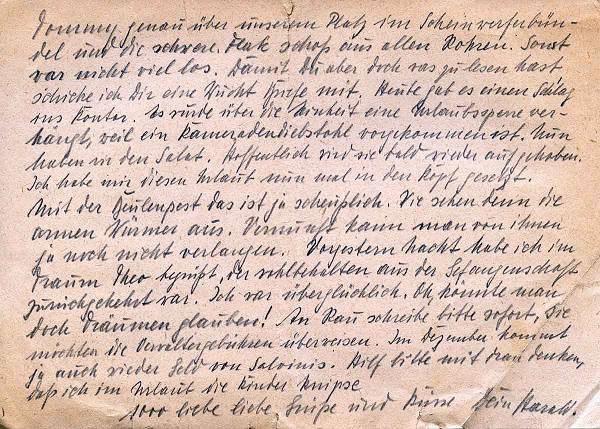 Tommy genau über unserem Platz im Scheinwerferbün-
del und die schwere Flak schoß aus allen Rohren. Sonst
war nicht viel los. Damit Du aber doch was zu lesen hast,
schicke ich Dir eine Briefe mit. Heute gab es einen Schlag
ins Kontor. Es wurde über die Einheit eine Urlaubssperre ver-
hängt, weil ein Kameradendiebstahl vorgekommen ist. Nun
haben wir den Salat. Hoffentlich wird sie bald wieder aufgehoben.
Ich habe mir diesen Urlaub nun mal in den Kopf gesetzt.
Mit der Beulenpest das ist ja scheußlich. Wie sehen denn die
armen Würmer aus. Vernunft kann man von ihnen
ja noch nicht verlangen. Vorgestern nacht habe ich im
Traum Theo begrüßt, der wohlbehalten aus der Gefangenschaft
zurückgekehrt war. Ich war überglücklich. Oh, könnte man
doch Träumen glauben! An Rau schreibe bitte sofort, sie
möchten die Verwaltergebühren überweisen. Im Dezember kommt
ja auch wieder Geld von Salvinis. Hilf bitte mit dran denken,
daß ich im Urlaub die Kinder knipse.
1000 liebe liebe Grüße und Küsse Dein Harald.